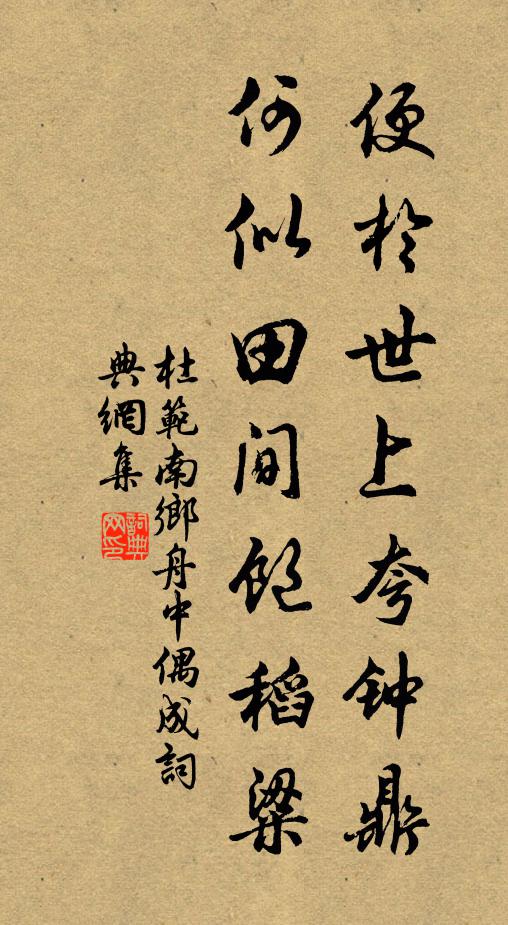 便於世上夸钟鼎
何似田间飽稻粱
杜範南鄉舟中偶成詞
典網集
詞典
网印